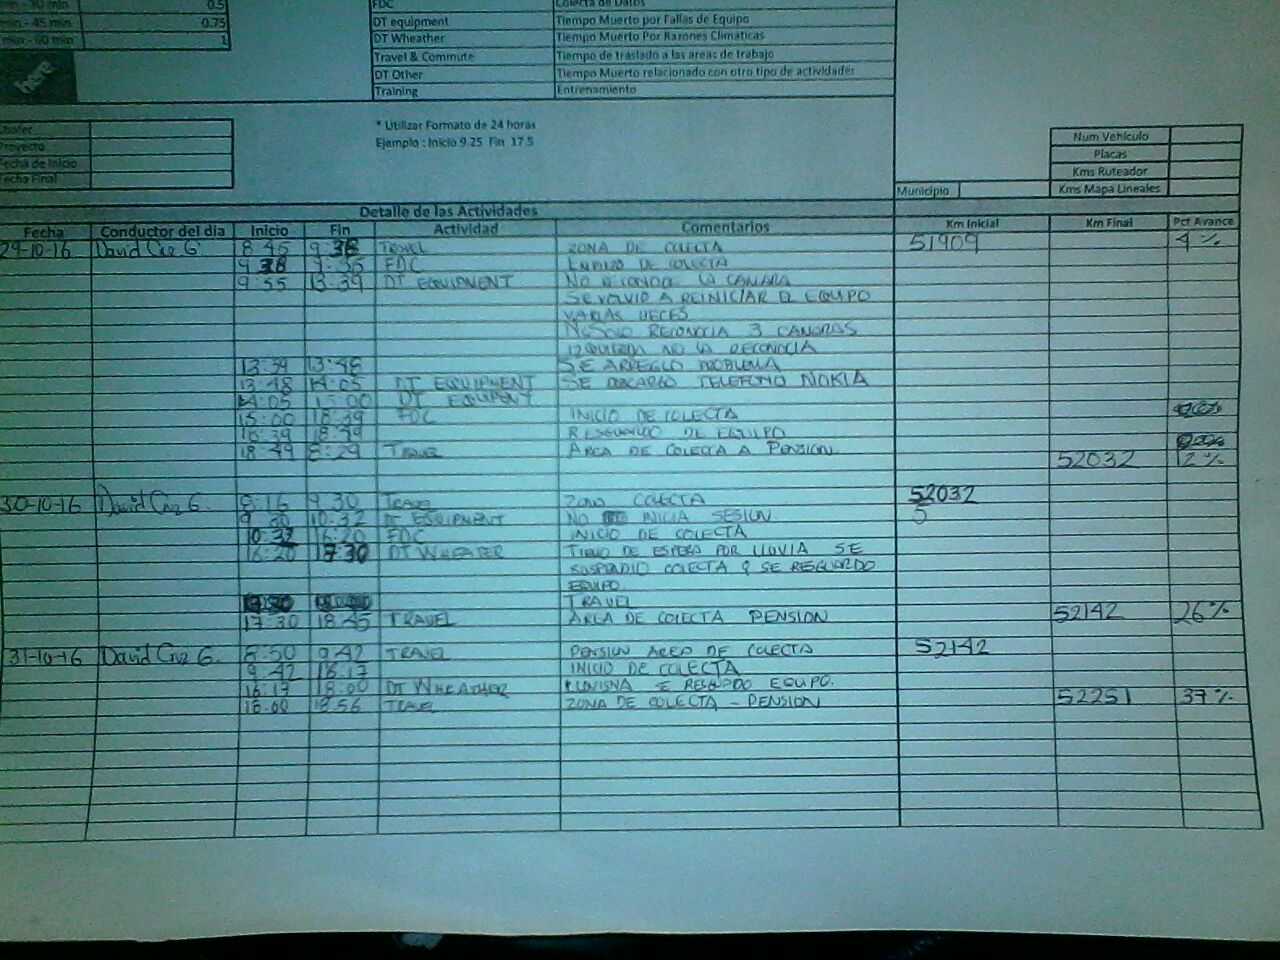 min - 30 min 0.5
min - 45 min 0.75
min - 60 min 1
here
FDC Colecta de Datos
DT equipment Tiempo Muerto por Fallas de Equipo
DT Wheather Tiempo Muerto Por Razones Climáticas
Travel & Commute Tiempo de traslado a las areas de trabajo
DT Other Tiempo Muerto relacionado con otro tipo de actividades
Training Entrenamiento
* Utilizar Formato de 24 horas
Ejemplo : Inicio 9.25 Fin 17.5
Chofer
Proyecto
Fecha de Inicio
Fecha Final
Num Vehículo
Placas
Kms Ruteador
Municipio Kms Mapa Lineales
Detalle de las Actividades
Fecha Conductor del dia Inicio Fin Actividad Comentarios Km Inicial Km Final Pct Avance
29-10-16 David Cruz G. 8:45 9:38 TRAVEL ZONA DE COLECTA 51909 4%
9:38 FDC DE COLECTA
9:55 13:39 DT EQUIPMENT NO LA CAMARA
SE VOLVIO A REINICIAR EL EQUIPO
VARIAS VECES
RECONOCIA 3 CAMARAS
NO LA RECONOCIA
13:39 13:48 SE ARREGLO PROBLEMA
13:48 14:05 DT EQUIPMENT SE DESCARGO TELEFONO NOKIA
14:05 DT EQUIPMENT
15:00 18:39 FDC INICIO DE COLECTA
18:39 18:49 RESGUARDO DE EQUIPO
18:49 8:29 TRAVEL AREA DE COLECTA A PENSION
52032 12%
30-10-16 David Cruz G. 8:16 9:30 TRAVEL ZONA COLECTA 52032
10:32 DT EQUIPMENT NO INICIA SESION 5
10:32 16:20 FDC INICIO DE COLECTA
16:20 17:30 DT WHEATER DE ESPERA POR LLUVIA SE
COLECTA Y SE RESGUARDO
EQUIPO.
TRAVEL
17:30 18:45 TRAVEL AREA DE COLECTA PENSION 52142 26%
31-10-16 David Cruz G. 8:50 9:42 TRAVEL PENSION AREA DE COLECTA 52142
9:42 16:17 INICIO DE COLECTA
16:17 18:00 DT WHEATHER EQUIPO.
18:00 18:56 TRAVEL ZONA DE COLECTA - PENSION 52251 37%